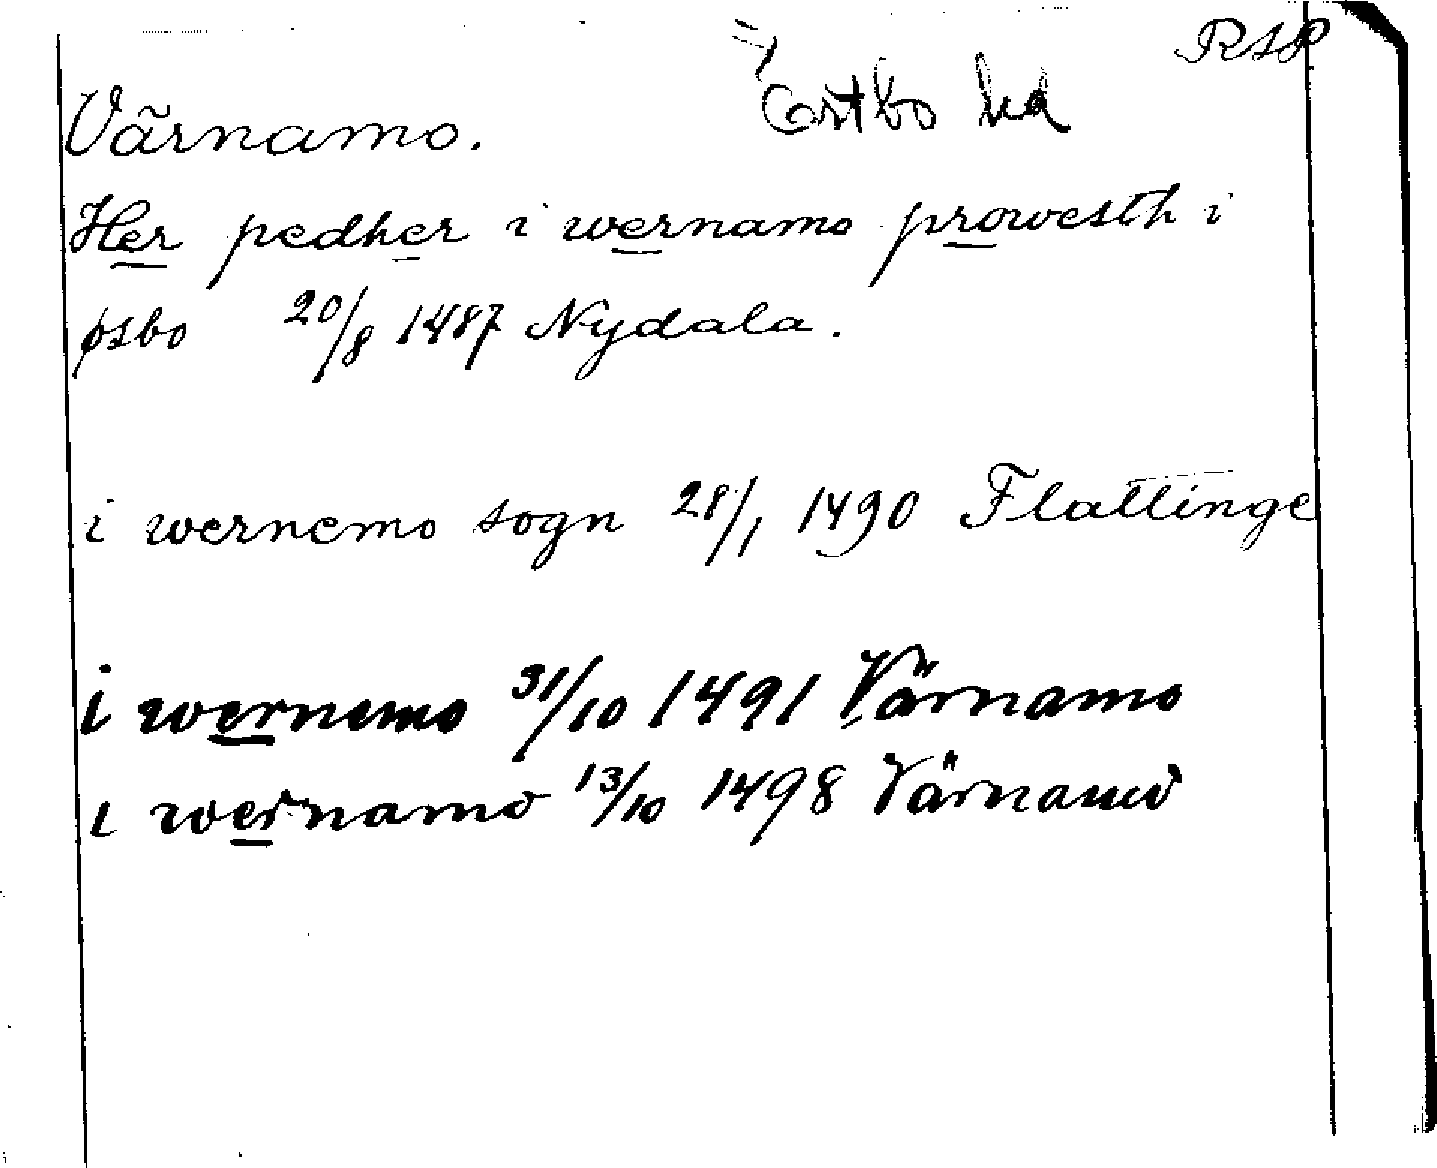 RAP
Östbo hd
Värnamo.
Her pedher i wernamo prowesth i
øsbo 20/8 1487 Nydala.
i wernemo sogn 28/1 1490 Flattinge
i wernemo 31/10 1491 Värnamo
i wernamo 13/10 1498 Värnamo